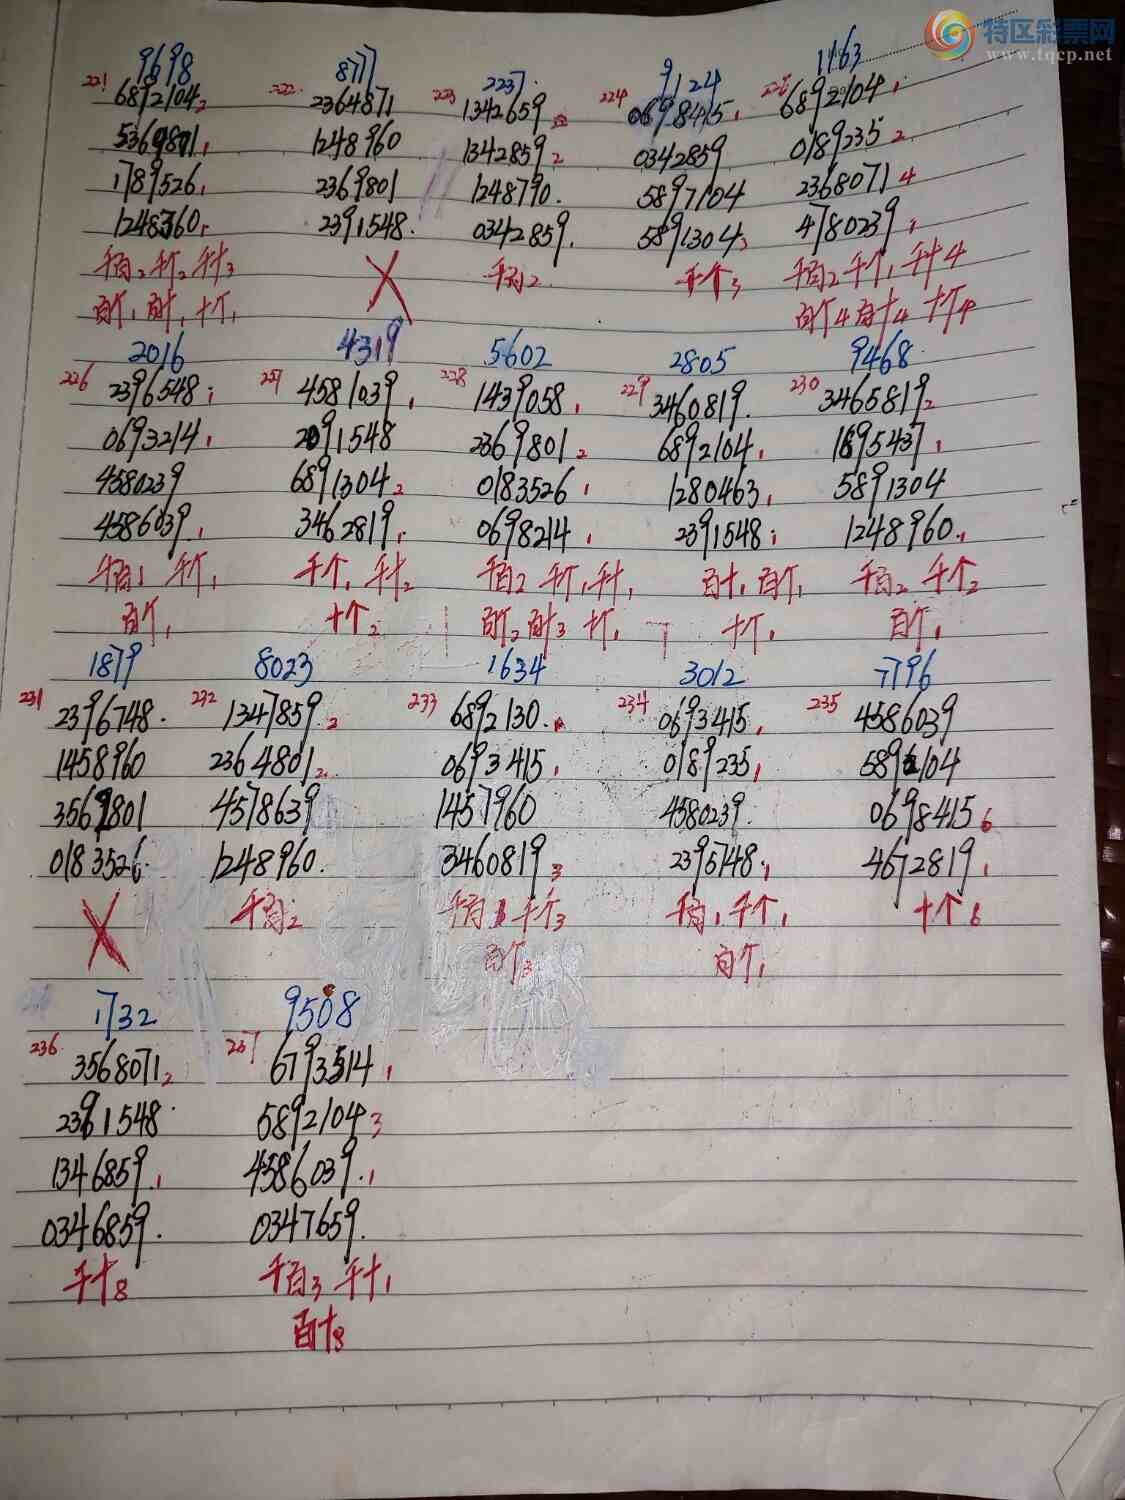 特区彩票网
www.tqcp.net
9698 8777 2237. 9124 1163
221 6892104 2 222 2364871 223 1342659 224 0698415 1 6892104 1
5369801 1 1248960 1342859 2 0342859 0189235 2
1789526 1 2369801 1248790. 5897104 2368071 4
1248360 2391548. 0342859. 5891304 3 4780239
千百2 千个2 千十3 X 千百2 千个3 千百2 千个1 千十4
百个1 百十1 十个1 百个4 百十4 十个4
2016 4319 5602 2805 9468
226 2396548 1 227 4581039 1 228 1439058 1 229 3460819. 230 3465819 2
0693214 1 2091548 2369801 2 6892104 1 1895437 1
4580239 6891304 2 0183526 1 1280463 1 5891304
4586039 1 3462819 1 0698214 1 2391548 1 1248960 1
千百1 千个1 千个1 千十2 千百2 千个1 千十1 百十1 百个1 千百2 千个2
百个1 十个2 百个2 百十3 十个1 十个1 百个1
1879 8023 1634 3012 7796
231 2396748. 232 1347859 2 233 6892130. 234 0693415 1 235 4586039
1458960 2364801 2 0693415 1 0189235 1 5892104
3569801 4578639 1457960 4580239. 0698415 6
0183526. 1248960. 3460819 3 2395748 1 4672819 1
X 千百2 千百1 千个3 千百1 千个1 十个6
百个3 百个1
1732 9508
236 3568071 2 237 6793514 1
2391548 5892104 3
1346859 1 4586039. 1
0346859. 0347659.
千十8 千百3 千十1
百十8